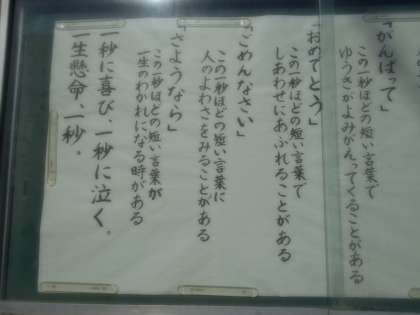 「がんばって」
この一秒ほどの短い言葉で
ゆうきがよみがえってくることがある
「おめでとう」
この一秒ほどの短い言葉で
しあわせにあふれることがある
「ごめんなさい」
この一秒ほどの短い言葉に
人のよわさをみることがある
「さようなら」
この一秒ほどの短い言葉が
一生のわかれになる時がある
一秒に喜び、一秒に泣く。
一生懸命、一秒。